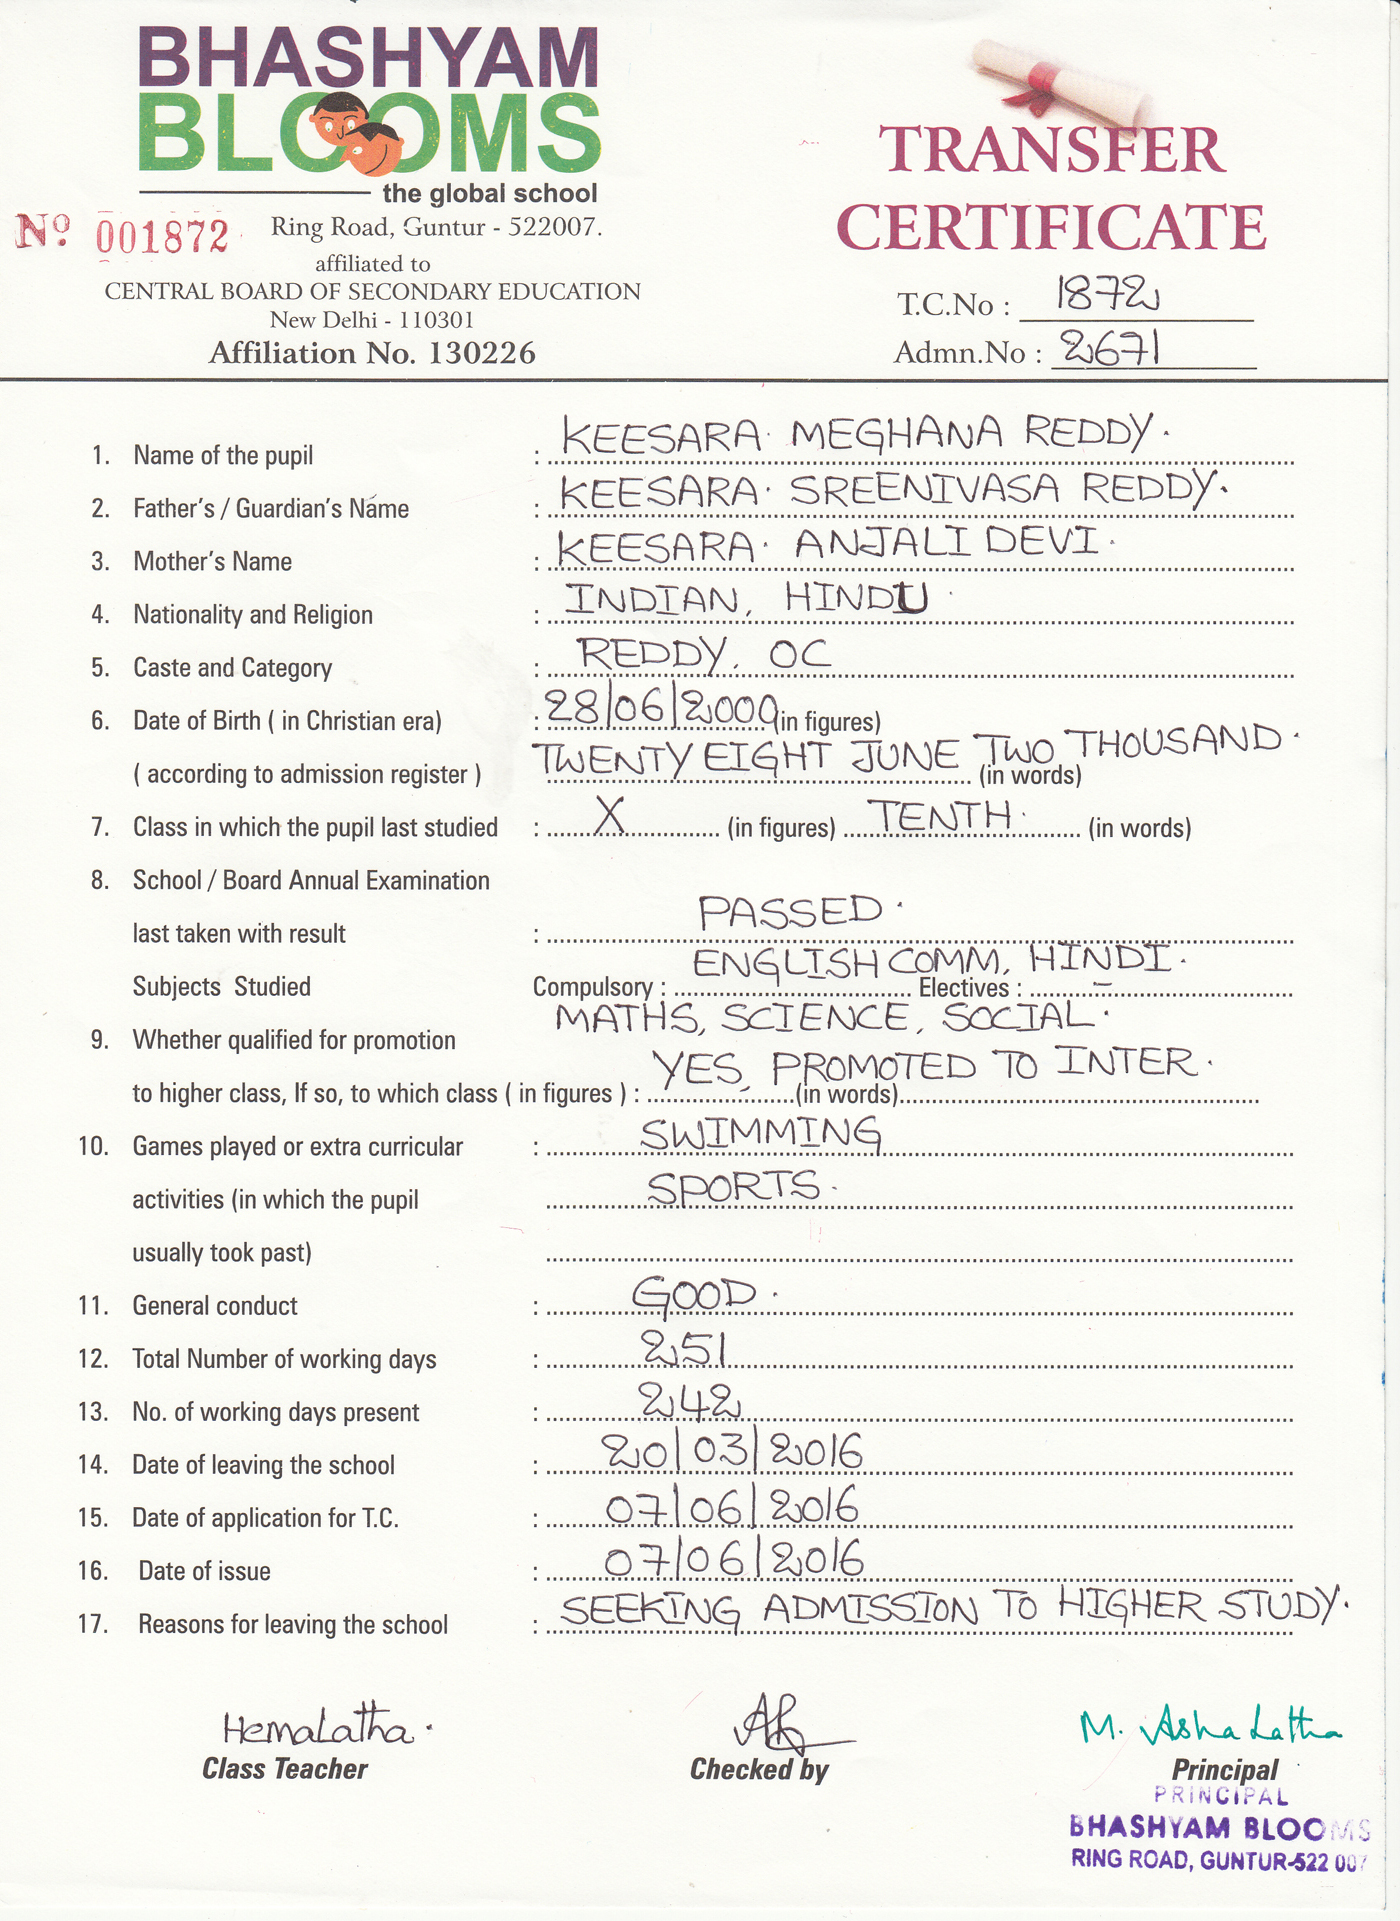 BHASHYAM
BLOOMS
the global school
Nº 001872
Ring Road, Guntur - 522007.
affiliated to
CENTRAL BOARD OF SECONDARY EDUCATION
New Delhi - 110301
Affiliation No. 130226
TRANSFER
CERTIFICATE
T.C.No : 1872
Admn.No : 2671
1. Name of the pupil : KEESARA. MEGHANA REDDY.
2. Father's / Guardian's Name : KEESARA. SREENIVASA REDDY.
3. Mother's Name : KEESARA. ANJALI DEVI.
4. Nationality and Religion : INDIAN, HINDU.
5. Caste and Category : REDDY, OC
6. Date of Birth ( in Christian era) : 28/06/2000 (in figures)
( according to admission register ) TWENTY EIGHT JUNE TWO THOUSAND. (in words)
7. Class in which the pupil last studied : X (in figures) TENTH. (in words)
8. School / Board Annual Examination
last taken with result : PASSED.
Subjects Studied Compulsory : ENGLISH COMM, HINDI. Electives : –
MATHS, SCIENCE, SOCIAL.
9. Whether qualified for promotion
to higher class, If so, to which class ( in figures ) : YES, PROMOTED TO INTER. (in words)
10. Games played or extra curricular : SWIMMING
activities (in which the pupil SPORTS.
usually took past)
11. General conduct : GOOD.
12. Total Number of working days : 251
13. No. of working days present : 242
14. Date of leaving the school : 20/03/2016
15. Date of application for T.C. : 07/06/2016
16. Date of issue : 07/06/2016
17. Reasons for leaving the school : SEEKING ADMISSION TO HIGHER STUDY.
HemaLatha. M. Asha Latha
Class Teacher Checked by Principal
PRINCIPAL
BHASHYAM BLOOMS
RING ROAD, GUNTUR-522 007